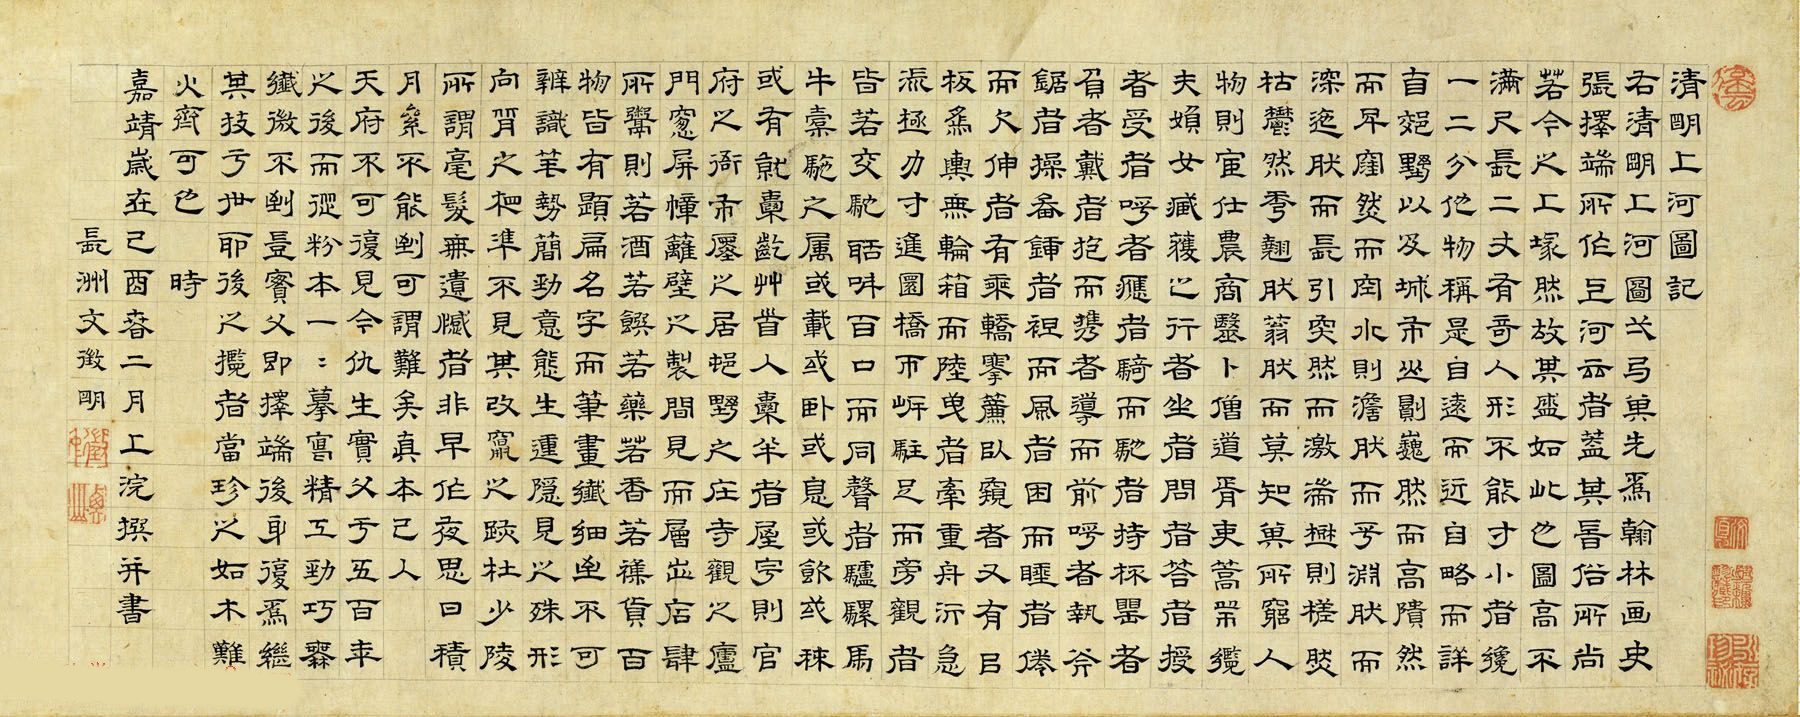 清明上河圖記
右清明上河圖弌弓其先爲翰林画史
張擇端所作巨河云者蓋其善俗所尚
若今之上塚然故其盛如此也圖高不
滿尺長二丈有奇人形不能寸小者纔
一二分他物稱是自遠而近自略而詳
自郊野以及城市山則巍然而高隤然
而卑窪然而空水則澹肰而平淵肰而
深迤肰而長引突然而激湍樹則槎然
枯鬱然秀翹肰蓊肰而莫知其所窮人
物則宦仕農商醫卜僧道胥吏篙帀纜
夫婦女臧獲之行者坐者問者答者授
者受者呼者應者騎而馳者持杯罌者
負者戴者抱而攜者導而前呼者執斧
鋸者操畚鍤者袒而風者困而睡者倦
而欠伸者有乘轎搴簾以窺者又有以
板爲輿無輪箱而陸曳者牽重舟沂急
流極力寸進圜橋帀岸駐足而旁觀者
皆若交馳聒叫百口而同聲者驢騾馬
牛橐駞之属或載或卧或息或飲或秣
或有就囊齕艸首入囊半者屋宇則官
府之衙市廛之居邨野之庄寺觀之廬
門窗屏幛籬壁之製間見而層出店肆
所鬻則若酒若饌若藥若香若襍貨百
物皆有題扁名字而筆畫纖細至不可
辨識筆勢簡勁意態生運隱見之殊形
向背之相準不見其改竄之跡杜少陵
所謂毫髮無遺憾者非早作夜思日積
月絫不能到可謂難矣真本已入
天府不可復見今仇生實父于五百年
之後而逕粉本一〻摹寫精工勁巧無
纖微不到豈實父即擇端後身復爲繼
其技于世耶後之攬者當珍之如木難
火齊可也 時
嘉靖歲在己酉春二月上浣撰并書
長洲文徵明